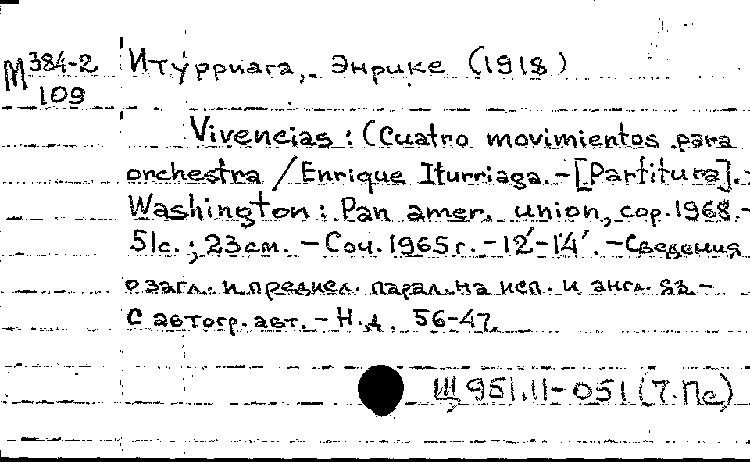 М 384-2 Итурриага, Энрике (1918)
109
Vivencias : (Cuatro movimientos para
orchestra / Enrique Iturriaga. - [Partitura]. -
Washington : Pan amer. union, cop. 1968. -
51 с. ; 23 см. - Соч. 1965 г. - 12'-14'. - Сведения
о загл. и предисл. парал. на исп. и англ. яз. -
С автогр. авт. - Н.д. 56-47.
Щ 951.11-051 (7.Пе)